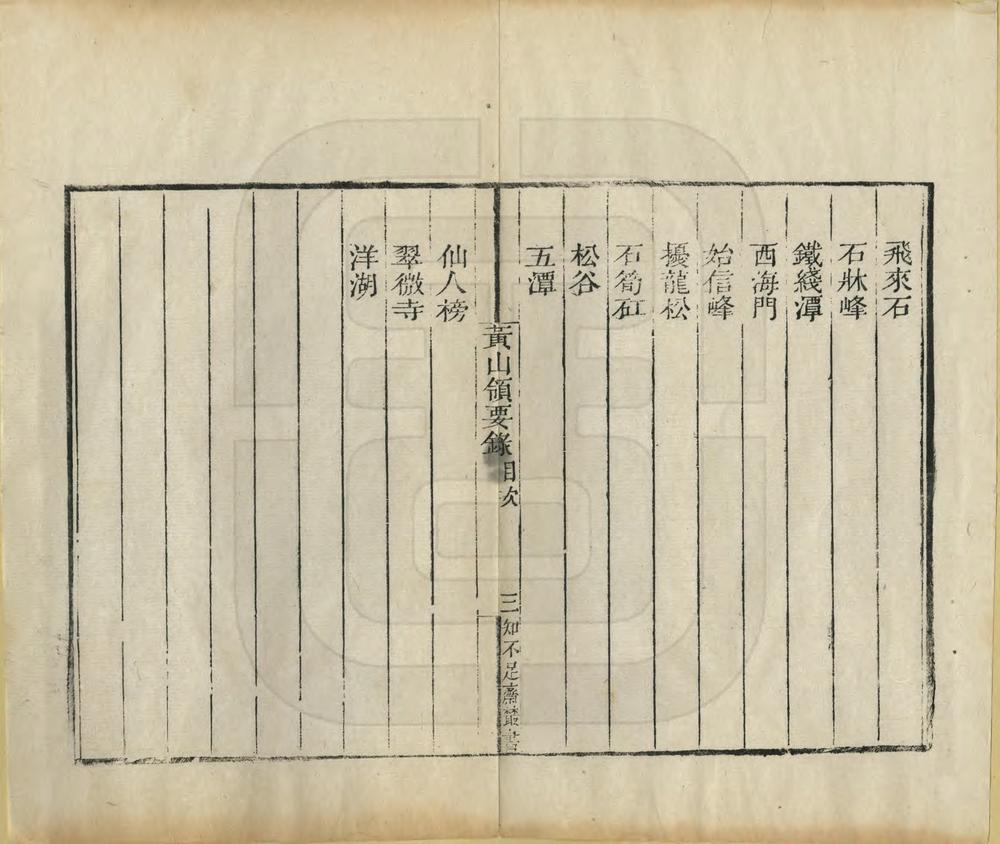 飛來石
石牀峰
鐵綫潭
西海門
始信峰
擾龍松
石筍矼
松谷
五潭
黃山領要錄
目次
三
知不足齋叢書
仙人榜
翠微寺
洋湖